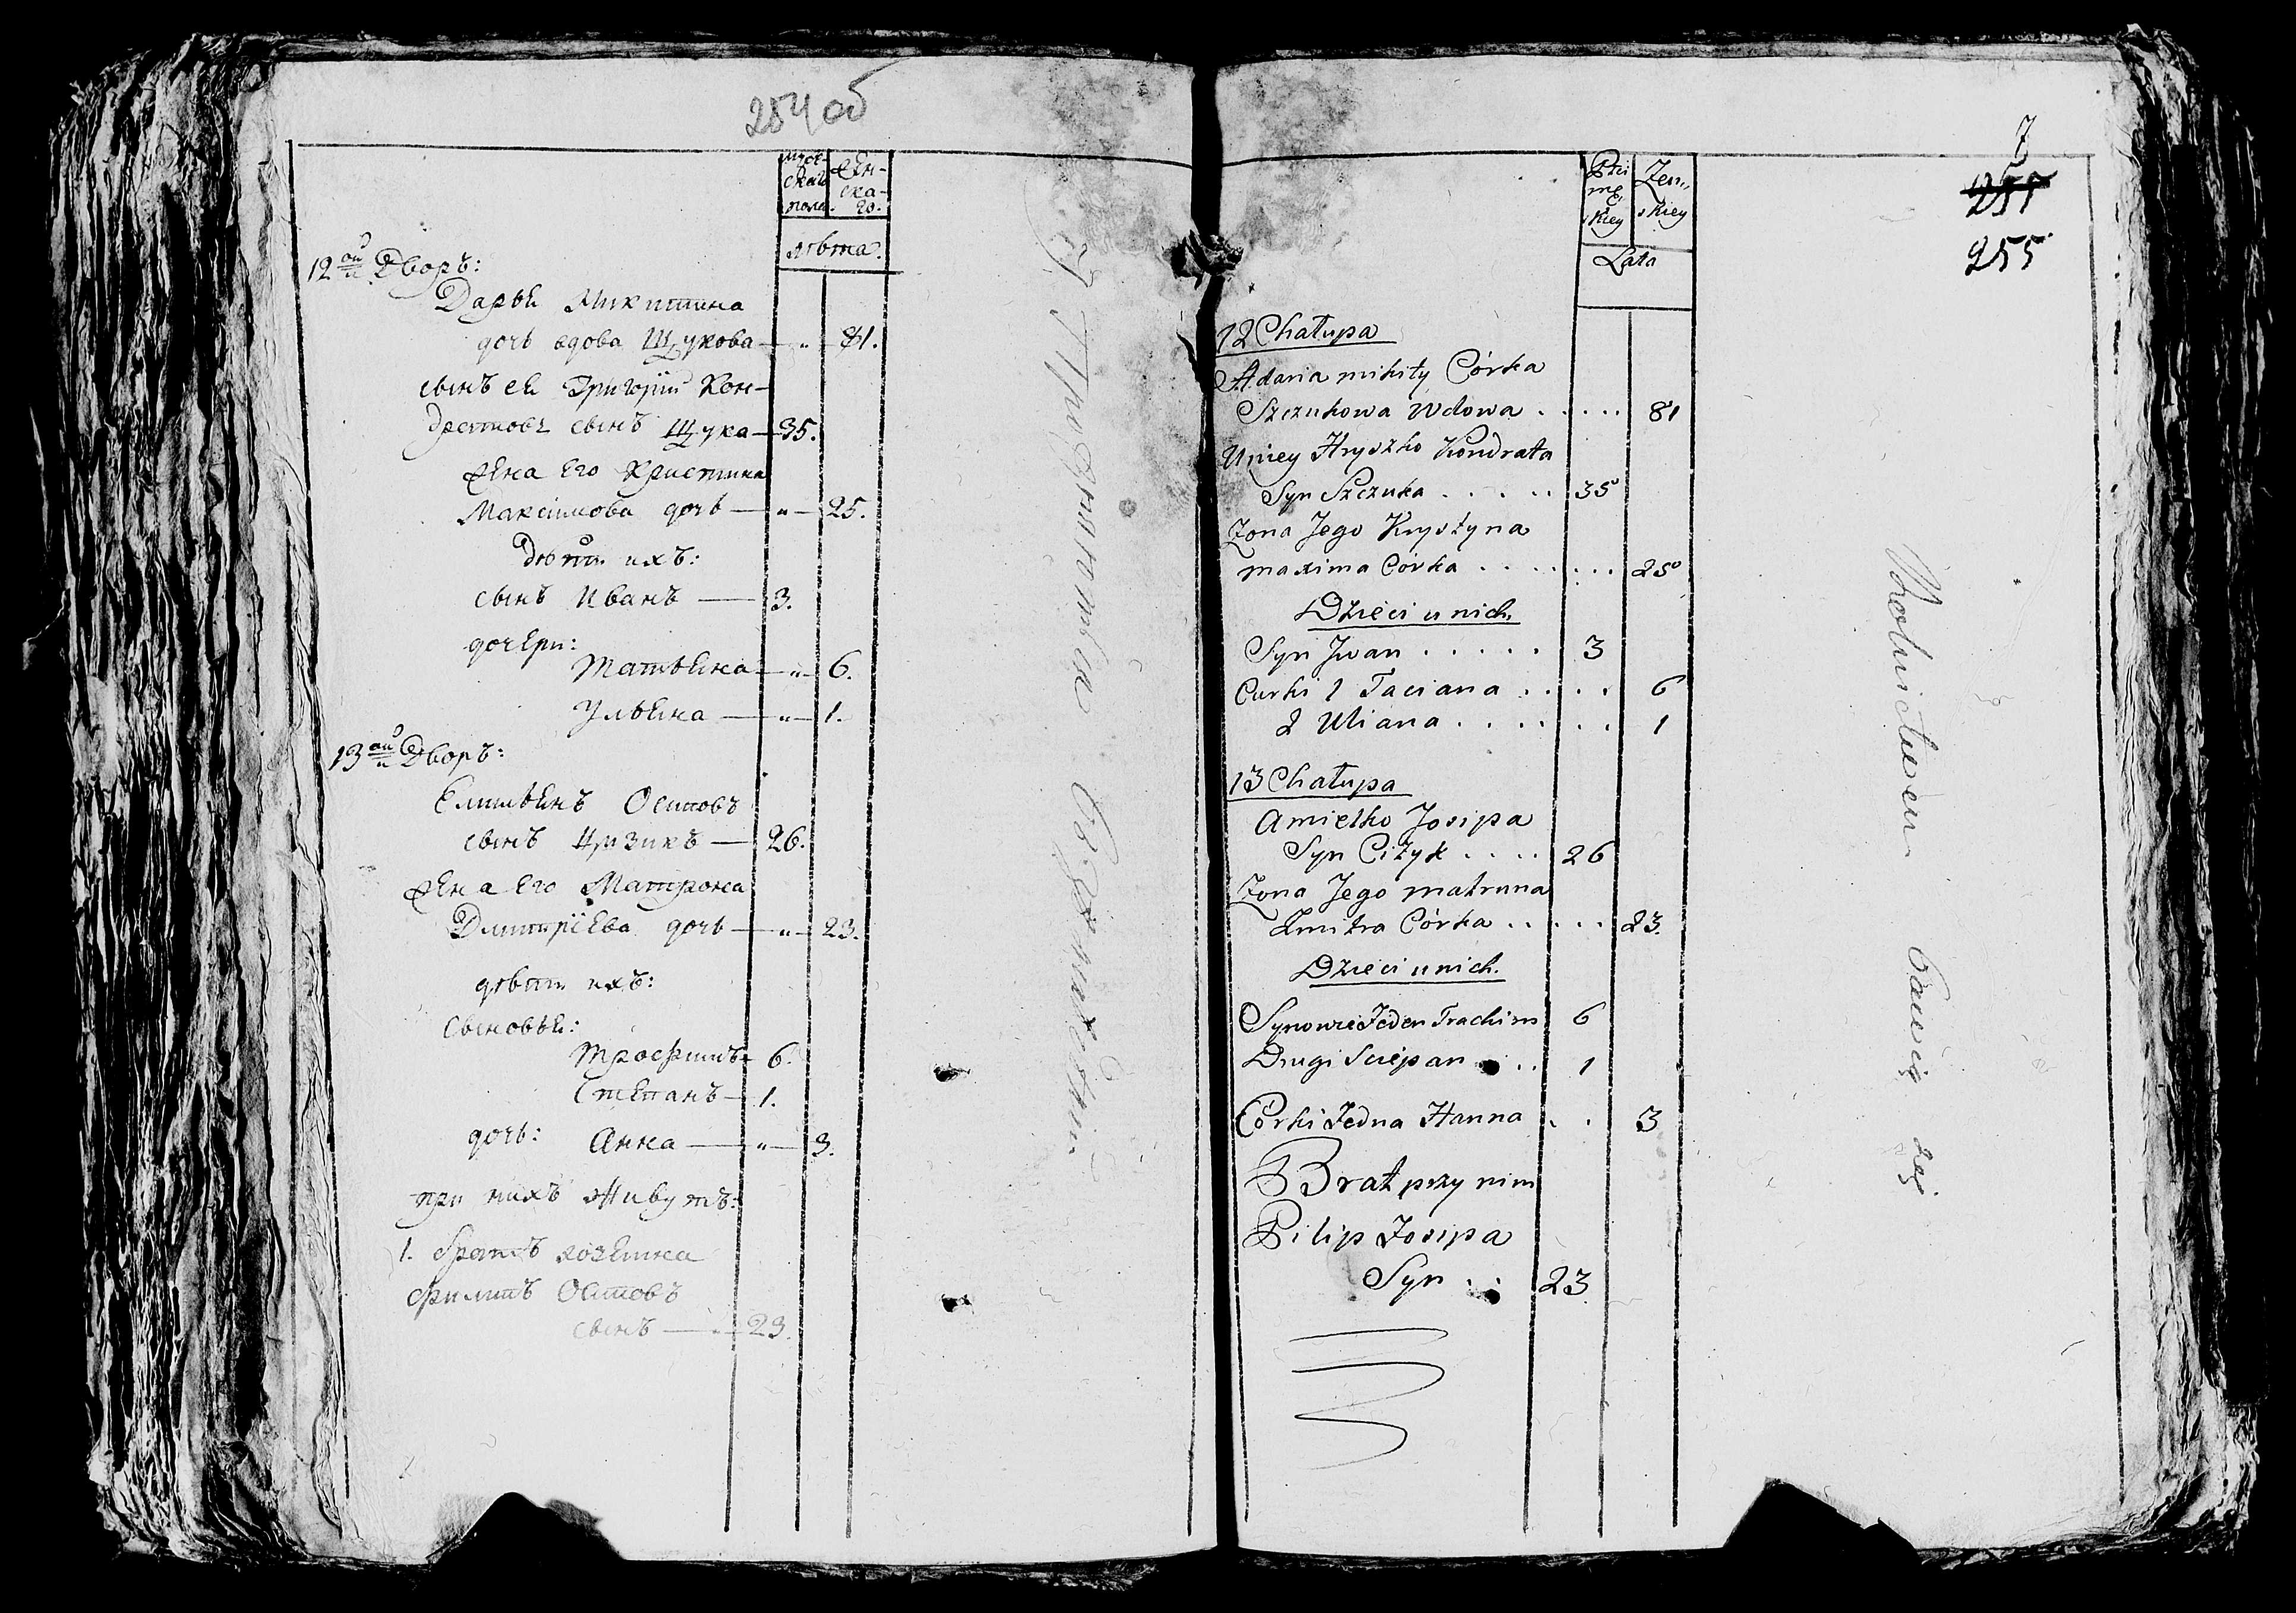 254 об
муже-
ска
пола.
жен-
ска-
го.
лѣта.
12ой Дворъ:
Дарья Микитина
дочь вдова Щукова — „ — 81.
сынъ ея Григорiй Кон-
дратовъ сынъ Щука — 35.
жена его Кристина
Максимова дочь — „ — 25.
дѣти ихъ:
сынъ Иванъ — 3.
дочери:
Татьяна — „ — 6.
Ульяна — „ — 1.
13ой Дворъ:
Емильянъ Осиповъ
сынъ — 26.
жена его Матрона
Дмитрiева дочь — „ — 23.
дѣти ихъ:
сыновья:
Трофимъ — 6.
Степанъ — 1.
дочь: Анна — „ — 3.
при нихъ живутъ:
1. братъ хозяина
Филипъ Осиповъ
сынъ — „ — 23.
7
255
255
Płci
mę
skiey
Żen„
skiey
Lata
12 Chałupa
Adaria mikity Córka
Szczukowa Wdowa . . . . . 81
Uniey Hryszko Kondrata
Syn Szczuka . . . . . 35
Zona Jego Krystyna
maxima Córka . . . . . . . 25
Dzieci u nich.
Syn Jwan . . . . . 3
Curki 1 Taciana . . . . 6
2 Uliana . . . . . . . 1
13 Chałupa
Amielko Josipa
Syn Ciżyk . . . . 26
Zona Jego matruna
Zmitra Córka . . . . . 23.
Dzieci u nich.
Synowie Jeden Trachim 6
Drugi Sciepan . . . 1
Córki Jedna Hanna . . 3
Brat przy nim
Pilip Josipa
Syn . . 23